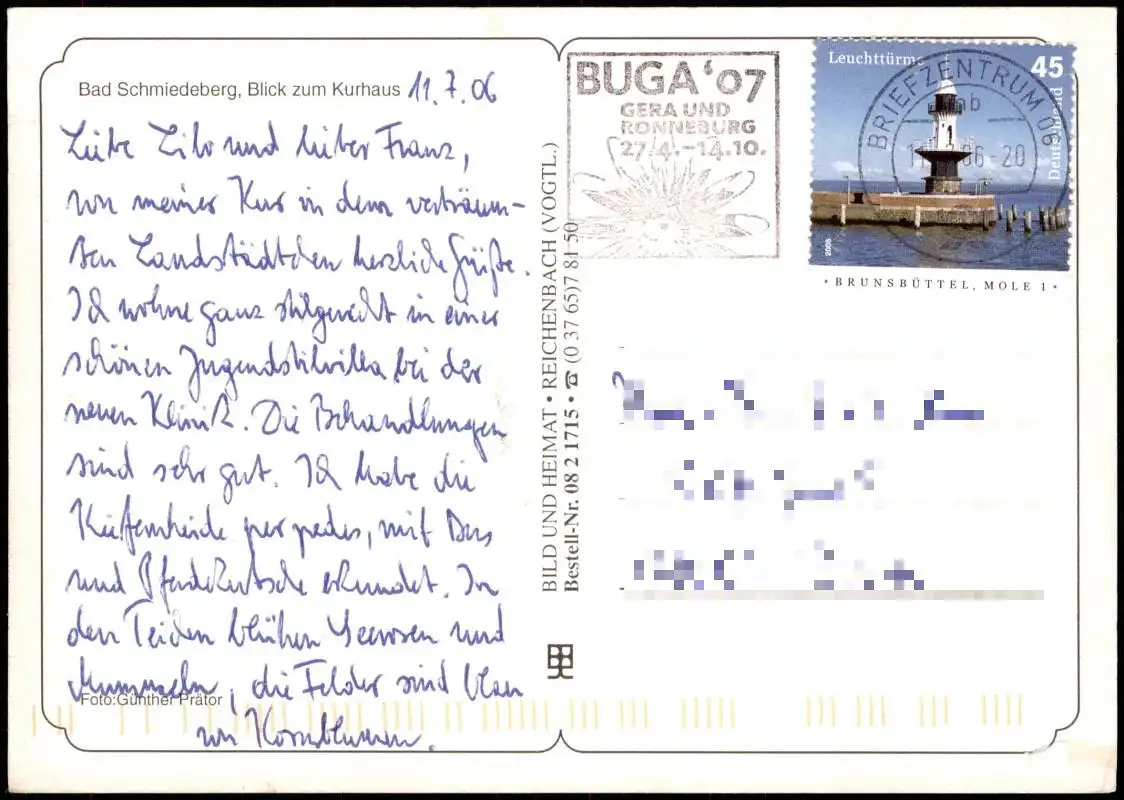 Bad Schmiedeberg, Blick zum Kurhaus 11.7.06
Liebe Lilo und lieber Franz,
von meiner Kur in dem verträum-
ten Landstädtchen herzliche Grüße.
Ich wohne ganz stilgerecht in einer
schönen Jugendstilvilla bei der
neuen Klinik. Die Behandlungen
sind sehr gut. Ich habe die
Kiefernheide per pedes, mit Bus
und Pferdekutsche erkundet. In
den Teichen blühen Seerosen und
Mummeln, die Felder sind blau
von Kornblumen.
Foto:Günther Prätor
BILD UND HEIMAT • REICHENBACH (VOGTL.)
Bestell-Nr. 08 2 1715 • ☎ (0 37 65) 7 81 50
BUGA '07
GERA UND
RONNEBURG
27.4.-14.10.
Leuchttürme
45
Deutschland
2005
BRIEFZENTRUM 06
mb
06-20
• BRUNSBÜTTEL, MOLE 1 •